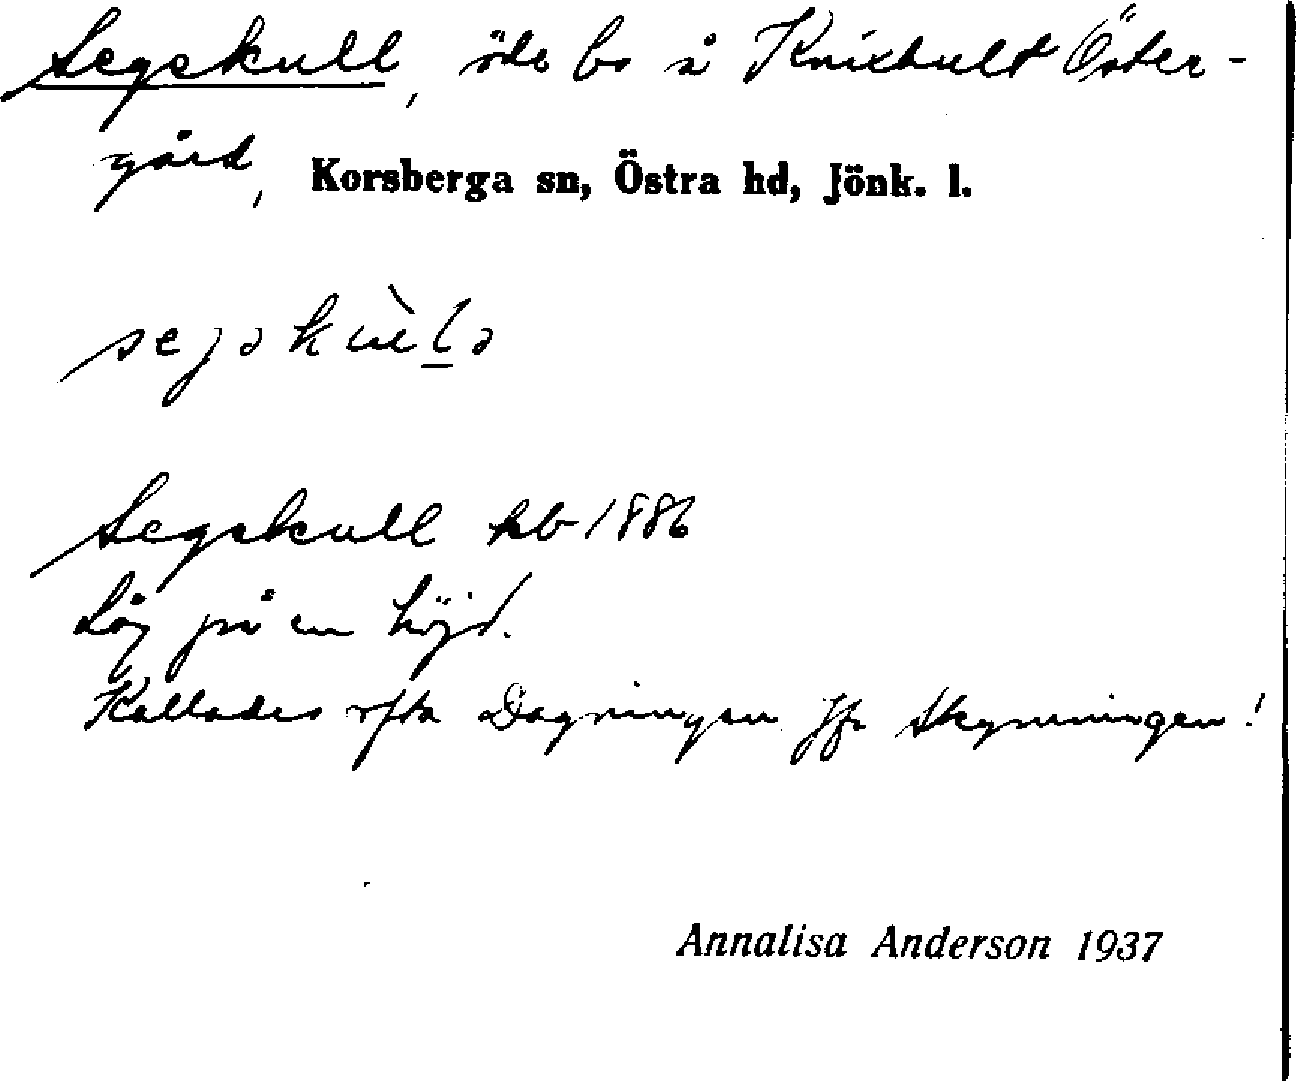 Segekull, öde bo å Knixhult Öster-
gård, Korsberga sn, Östra hd, Jönk. l.
Segekull hb 1886
Låg på en höjd.
Kallades ofta Dagningen Jfr Skymningen!
Annalisa Anderson 1937